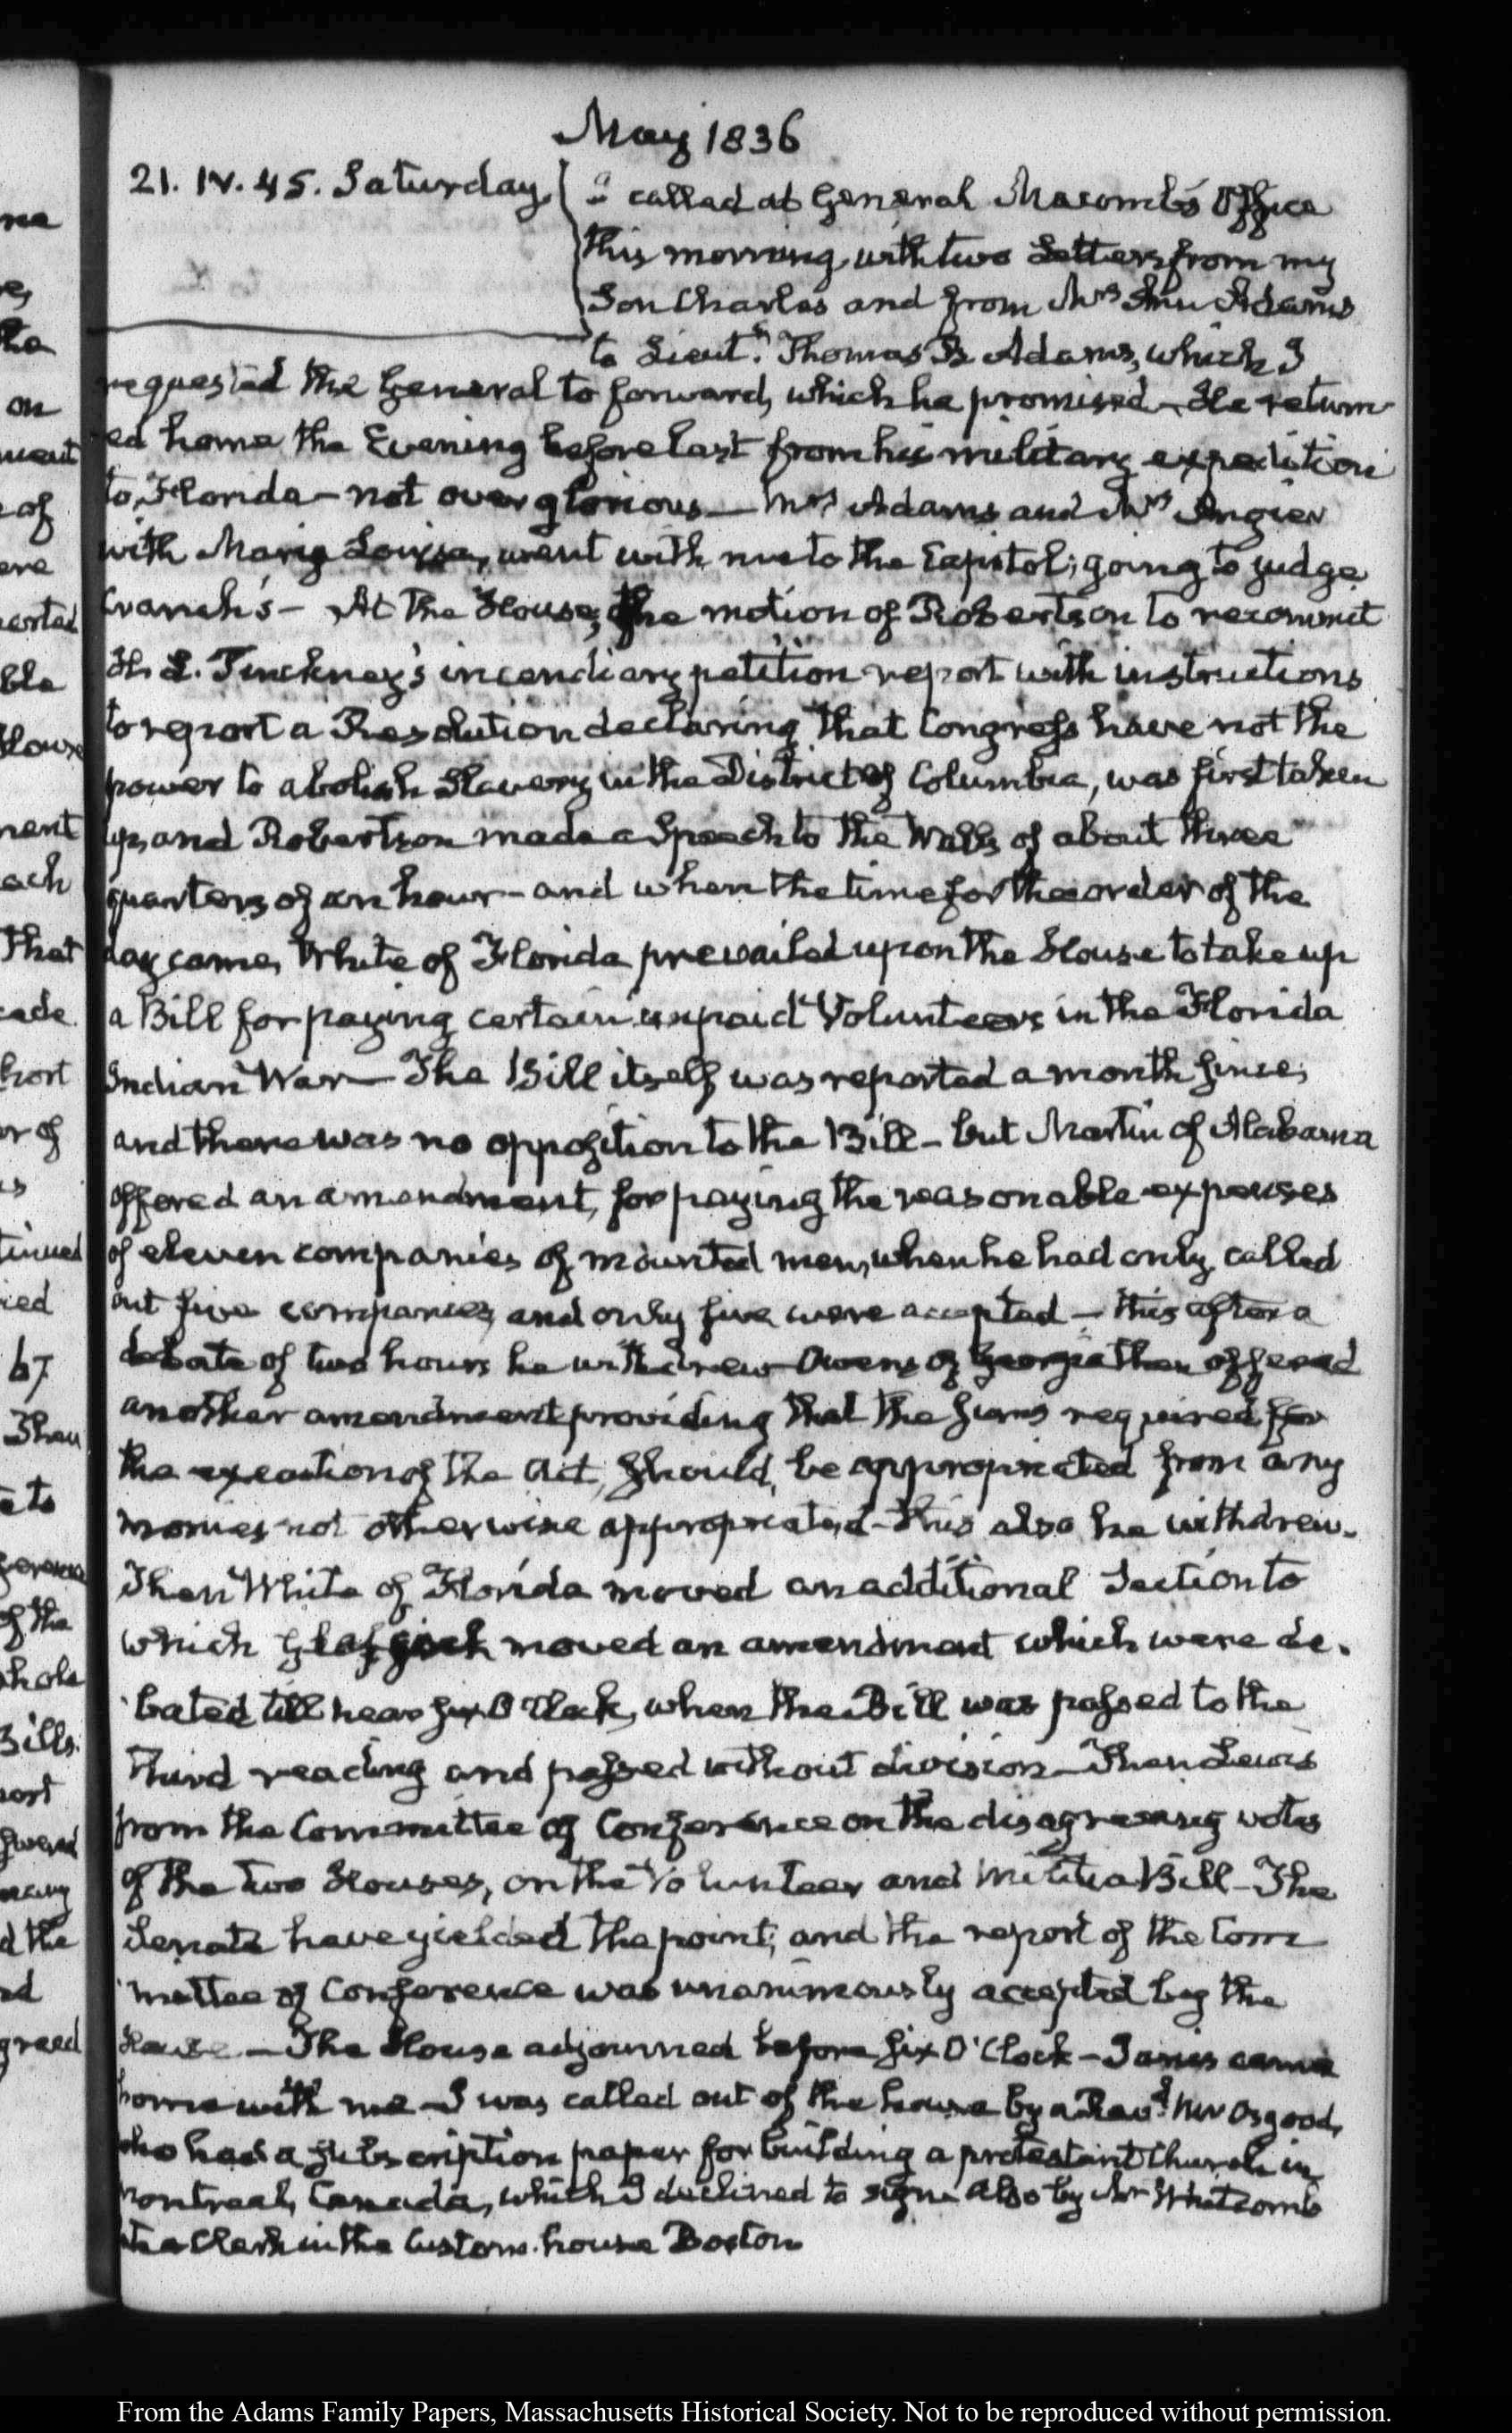 May 1836
21. IV. 45. Saturday.
I called at General Macomb's Office
this morning with two Letters from my
Son Charles and from Mrs Ann Adams
to Lieutt. Thomas B. Adams, which I
requested the General to forward, which he promised — He return
ed home the Evening before last from his military expedition
to Florida — not over glorious — Mrs Adams and Mrs Angier
with Mary Louisa, went with me to the Capitol; going to judge
Cranch's — At the House, the motion of Robertson to recommit
H. L. Pinckney's incendiary petition report with instructions
to report a Resolution declaring that Congress have not the
power to abolish Slavery in the District of Columbia, was first taken
up, and Robertson made a Speech to the Walls of about three
quarters of an hour — and when the time for the order of the
day came, White of Florida prevailed upon the House to take up
a Bill for paying certain unpaid Volunteers in the Florida
Indian War — The Bill itself was reported a month since,
and there was no opposition to the Bill — but Martin of Alabama
offered an amendment, for paying the reasonable expenses
of eleven companies of mounted men, when he had only called
out five companies, and only five were accepted — this after a
debate of two hours he withdrew — Owens of Georgia then offered
another amendment providing that the sums required for
the execution of the Act, should, be appropriated from any
monies not otherwise appropriated — this also he withdrew.
Then White of Florida moved an additional Section to
which Glascock moved an amendment which were de-
bated till near six O'Clock, when the Bill was passed to the
third reading and passed without division — Then Lewis
from the Committee of Conference on the disagreeing votes
of the two Houses, on the Volunteer and Militia Bill — The
Senate have yielded the point, and the report of the Com
mittee of Conference was unanimously accepted by the
House. — The House adjourned before six O'Clock — Janes came
home with me — I was called out of the house by a Revd. Mr Osgood,
who had a subscription paper for building a protestant Church in
Montreal, Canada, which I declined to sign also by Mr Whitcomb
late a Clerk in the Custom-house Boston
From the Adams Family Papers, Massachusetts Historical Society. Not to be reproduced without permission.